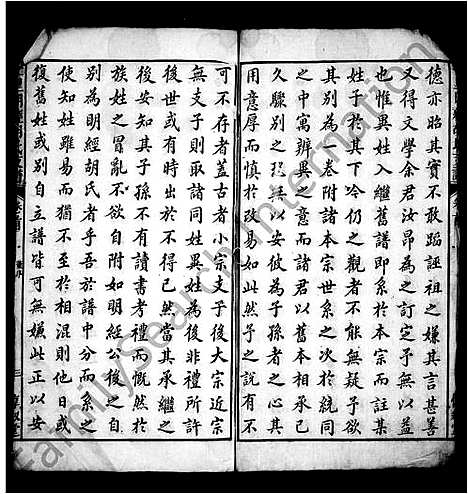 德亦昭其實不敢蹈誣祖之嫌其言甚善
又得文學余君汝昂為之訂定予無以益
也惟異姓入繼舊譜即系於本宗而註某
姓於其下今仍之觀者不能無疑予欲
別為一卷附諸本宗世系之次於統同
之中寓辨異之意而諸君以舊本相承已
久驟別之無以安彼為子孫者之心其
用意厚而慎於改易如此然予之說有不
可不存者蓋古者小宗支子後大宗近宗
無支子則取諸同姓異姓為後非禮所許
後世有時出於不得已然當其承繼之
後安知其子孫不有讀書考禮而慨然於
族姓之冒亂不欲自附如明經公後之自
別為明經胡氏者乎吾於譜中分而系之
使知姓雖同而猶不至於相混則他日或
復舊姓或別自立譜皆可無嫌此正以安
三
FamilySearch International